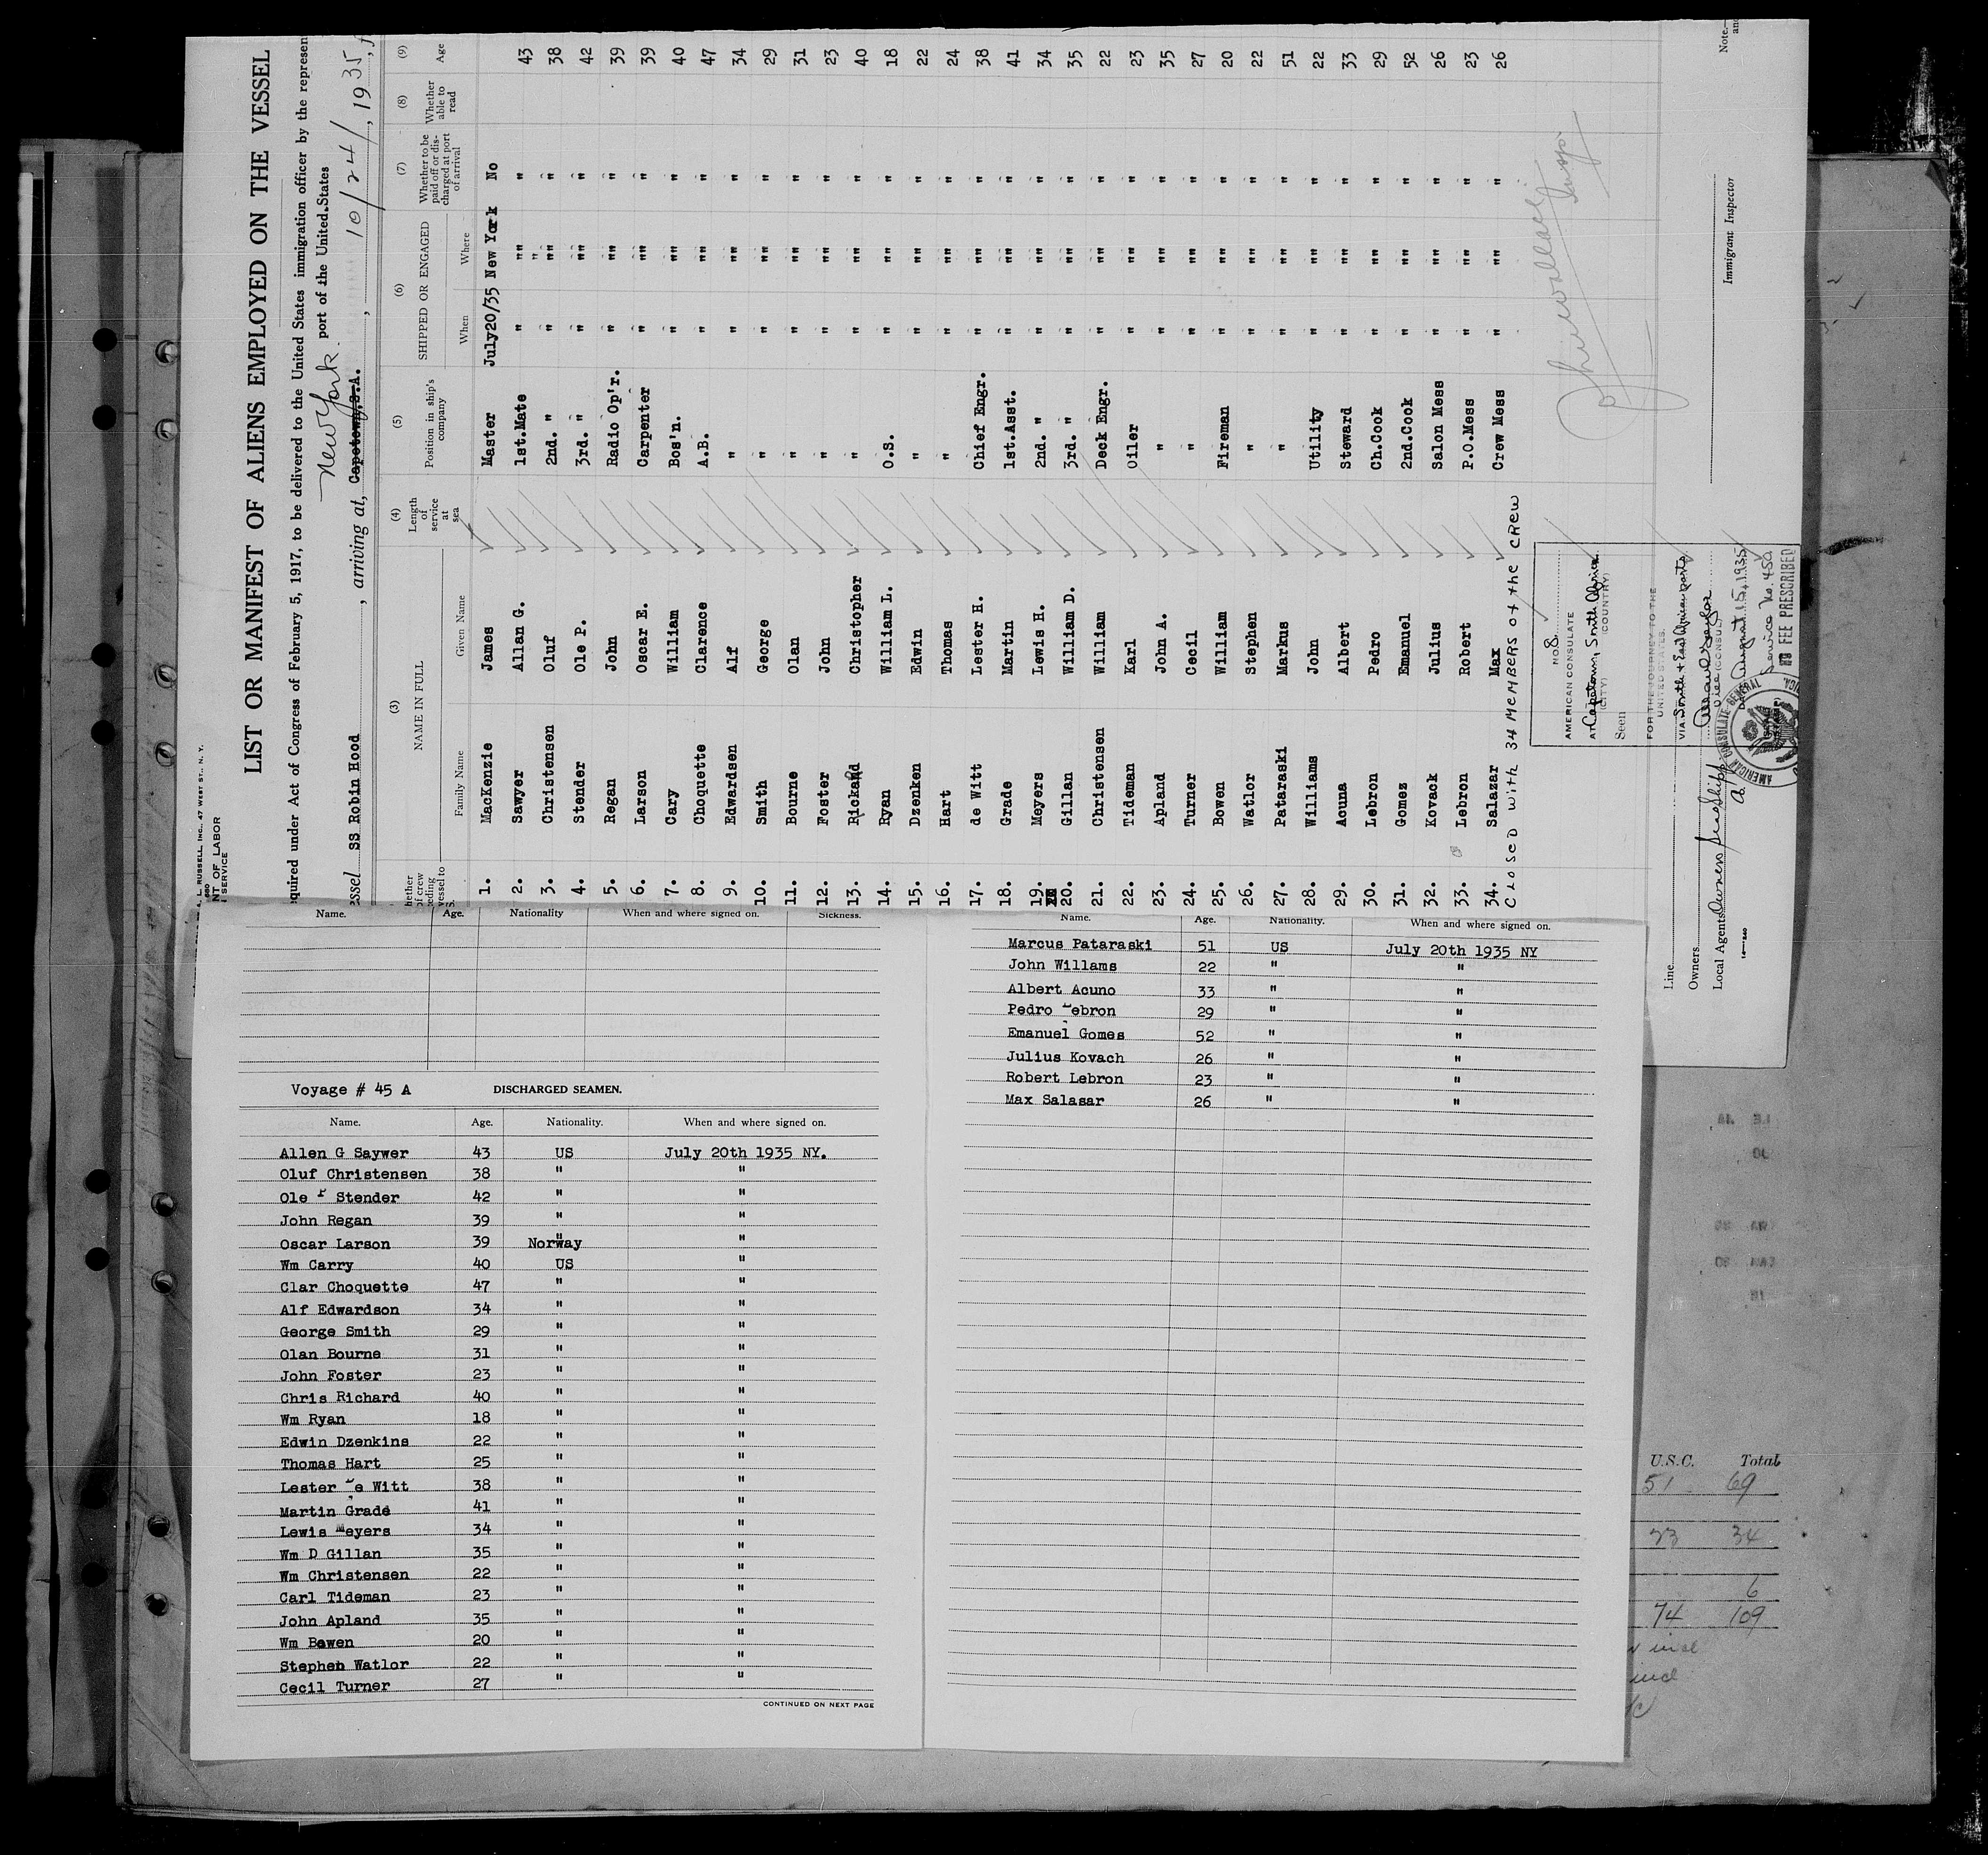 L. RUSSELL, INC., 47 WEST ST., N. Y.
NT OF LABOR
SERVICE
LIST OR MANIFEST OF ALIENS EMPLOYED ON THE VESSEL
equired under Act of Congress of February 5, 1917, to be delivered to the United States immigration officer by the represen
New York. port of the United States
essel SS Robin Hood , arriving at, Capetown, S.A. , 10/24/, 1935, f
(3) (4) (5) (6) (7) (8) (9)
NAME IN FULL Length of service at sea Position in ship's company SHIPPED OR ENGAGED Whether to be paid off or discharged at port of arrival Whether able to read Age
Family Name Given Name When Where
1. MacKenzie James Master July20/35 New York No
2. Sawyer Allan G. 1st.Mate " "" " 43
3. Christensen Oluf 2nd. " " "" " 38
4. Stender Ole P. 3rd. " " "" " 42
5. Regan John Radio Op'r. " "" " 39
6. Larson Oscar E. Carpenter " "" " 39
7. Cary William Bos'n. " "" " 40
8. Choquette Clarence A.B. " "" " 47
9. Edwardsen Alf " " "" " 34
10. Smith George " " "" " 29
11. Bourne Olan " " "" " 31
12. Foster John " " "" " 23
13. Rickard Christopher " " "" " 40
14. Ryan William L. O.S. " "" " 18
15. Dzenken Edwin " " "" " 22
16. Hart Thomas " " "" " 24
17. de Witt Lester H. Chief Engr. " "" " 38
18. Grade Martin 1st.Asst. " "" " 41
19. Meyers Lewis H. 2nd. " " "" " 34
20. Gillan William D. 3rd. " " "" " 35
21. Christensen William Deck Engr. " "" " 22
22. Tideman Karl Oiler " "" " 23
23. Apland John A. " " "" " 35
24. Turner Cecil " " "" " 27
25. Bowen William Fireman " "" " 20
26. Watlor Stephen " " "" " 22
27. Pataraski Markus " " "" " 51
28. Williams John Utility " "" " 22
29. Acuna Albert Steward " "" " 33
30. Lebron Pedro Ch.Cook " "" " 29
31. Gomez Emanuel 2nd.Cook " "" " 52
32. Kovack Julius Salon Mess " "" " 26
33. Lebron Robert P.O.Mess " "" " 23
34. Salazar Max Crew Mess " "" " 26
Closed with 34 members of the crew
NO. 8
AMERICAN CONSULATE
AT Capetown, South Africa.
(CITY) (COUNTRY)
Seen
FOR THE JOURNEY TO THE
UNITED STATES.
VIA South & East African ports
VICE CONSUL
August 15, 1935
Service No. 450
NO FEE PRESCRIBED
AMERICAN CONSULATE GENERAL
Line
Owners
Local Agents
Immigrant Inspector
Note.—
Name. Age. Nationality When and where signed on. Sickness.
Voyage # 45 A DISCHARGED SEAMEN.
Name. Age. Nationality. When and where signed on.
Allen G Saywer 43 US July 20th 1935 NY.
Oluf Christensen 38 " "
Ole P Stender 42 " "
John Regan 39 " "
Oscar Larson 39 Norway "
Wm Carry 40 US "
Clar Choquette 47 " "
Alf Edwardson 34 " "
George Smith 29 " "
Olan Bourne 31 " "
John Foster 23 " "
Chris Richard 40 " "
Wm Ryan 18 " "
Edwin Dzenkins 22 " "
Thomas Hart 25 " "
Lester De Witt 38 " "
Martin Grade 41 " "
Lewis Meyers 34 " "
Wm D Gillan 35 " "
Wm Christensen 22 " "
Carl Tideman 23 " "
John Apland 35 " "
Wm Bowen 20 " "
Stephen Watlor 22 " "
Cecil Turner 27 " "
CONTINUED ON NEXT PAGE
Name. Age. Nationality. When and where signed on.
Marcus Pataraski 51 US July 20th 1935 NY
John Willams 22 " "
Albert Acuno 33 " "
Pedro Lebron 29 " "
Emanuel Gomes 52 " "
Julius Kovach 26 " "
Robert Lebron 23 " "
Max Salasar 26 " "
U.S.C. Total
51 69
23 34
6
74 109
incl
incl